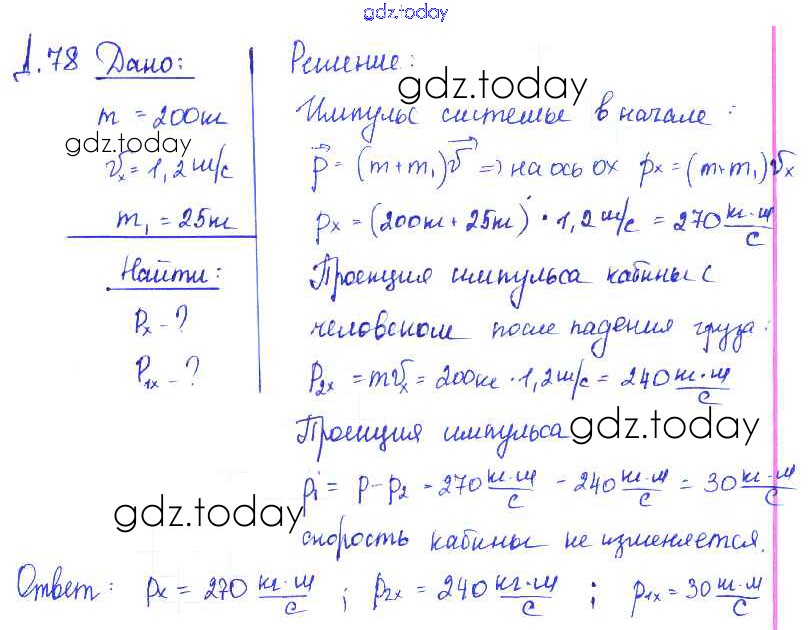 gdz.today
Д.78 Дано:
m = 200кг
gdz.today
vₓ = 1,2 м/с
m₁ = 25кг
Найти:
pₓ - ?
p₁ₓ - ?
Решение:
gdz.today
Импульс системы в начале:
p⃗ = (m+m₁)v⃗ => на ось ox pₓ = (m+m₁)vₓ
pₓ = (200кг + 25кг) · 1,2 м/с = 270 кг·м/с
Проекция импульса кабины с
человеком после падения груза:
p₂ₓ = mvₓ = 200кг · 1,2 м/с = 240 кг·м/с
Проекция импульса
gdz.today
p₁ = p - p₂ = 270 кг·м/с - 240 кг·м/с = 30 кг·м/с
gdz.today
скорость кабины не изменяется.
Ответ: pₓ = 270 кг·м/с ; p₂ₓ = 240 кг·м/с ; p₁ₓ = 30 кг·м/с